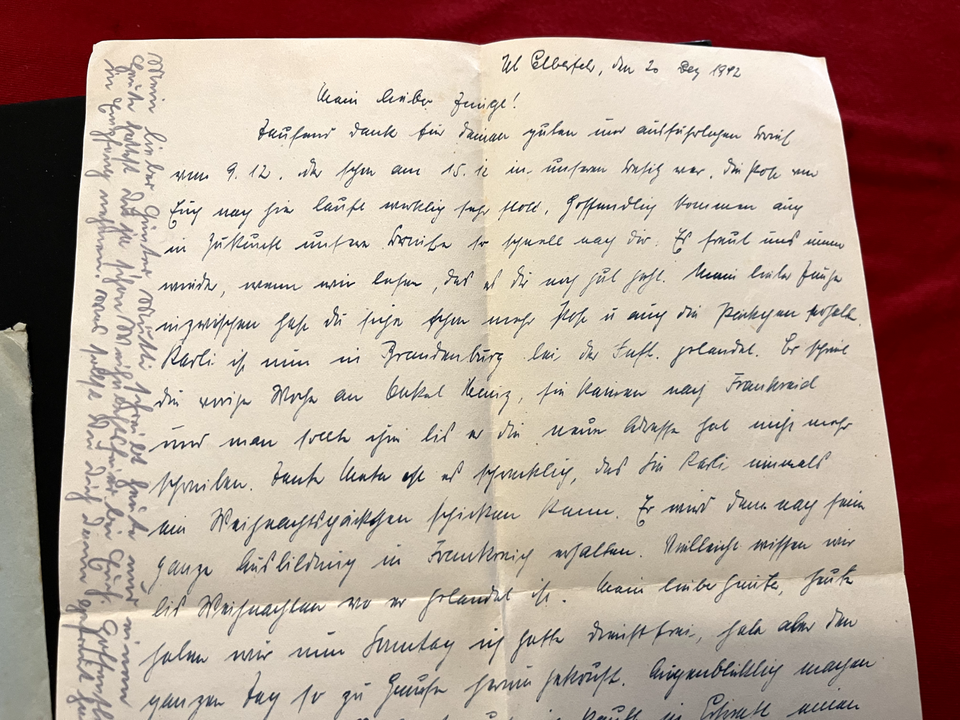 Elberfeld, den 20 Dez 1942
Mein lieber Junge!
Tausend Dank für deinen guten und ausführlichen Brief
vom 9.12. der schon am 15.12 in unserem Besitz war. Die Post von
Euch nach hier läuft wirklich sehr flott, hoffendlich kommen auch
in Zukunft unsere Briefe so schnell nach dir. Es freut uns immer
wieder, wenn wir lesen, das es dir noch gut geht. Mein lieber Junge
inzwischen hast du sicher schon mehr Post u auch die Päckchen erhalt.
Karli ist nun in Brandenburg bei der Luft. gelandet. Er schrieb
die vorige Woche an Onkel Heinz, sie kämen nach Frankreich
und man sollte ihm bis er die neue Adresse hat nicht mehr
schreiben. Tante Meta ist es schrecklich, das sie Karli niemals
ein Weihnachtspäckchen schicken kann. Er wird dann noch seine
ganze Ausbildung in Frankreich erhalten. Vielleicht wissen wir
bis Weihnachten wo er gelandet ist. Mein lieber heute
haben wir nun Sonntag ich hatte dienstfrei, habe aber den
ganzen Tag so zu Hause herum gekruft. Augenblicklich machen
in einen
Mein lieber Günter Mutti schreibt heute nur einen
in Empfang nehmen.